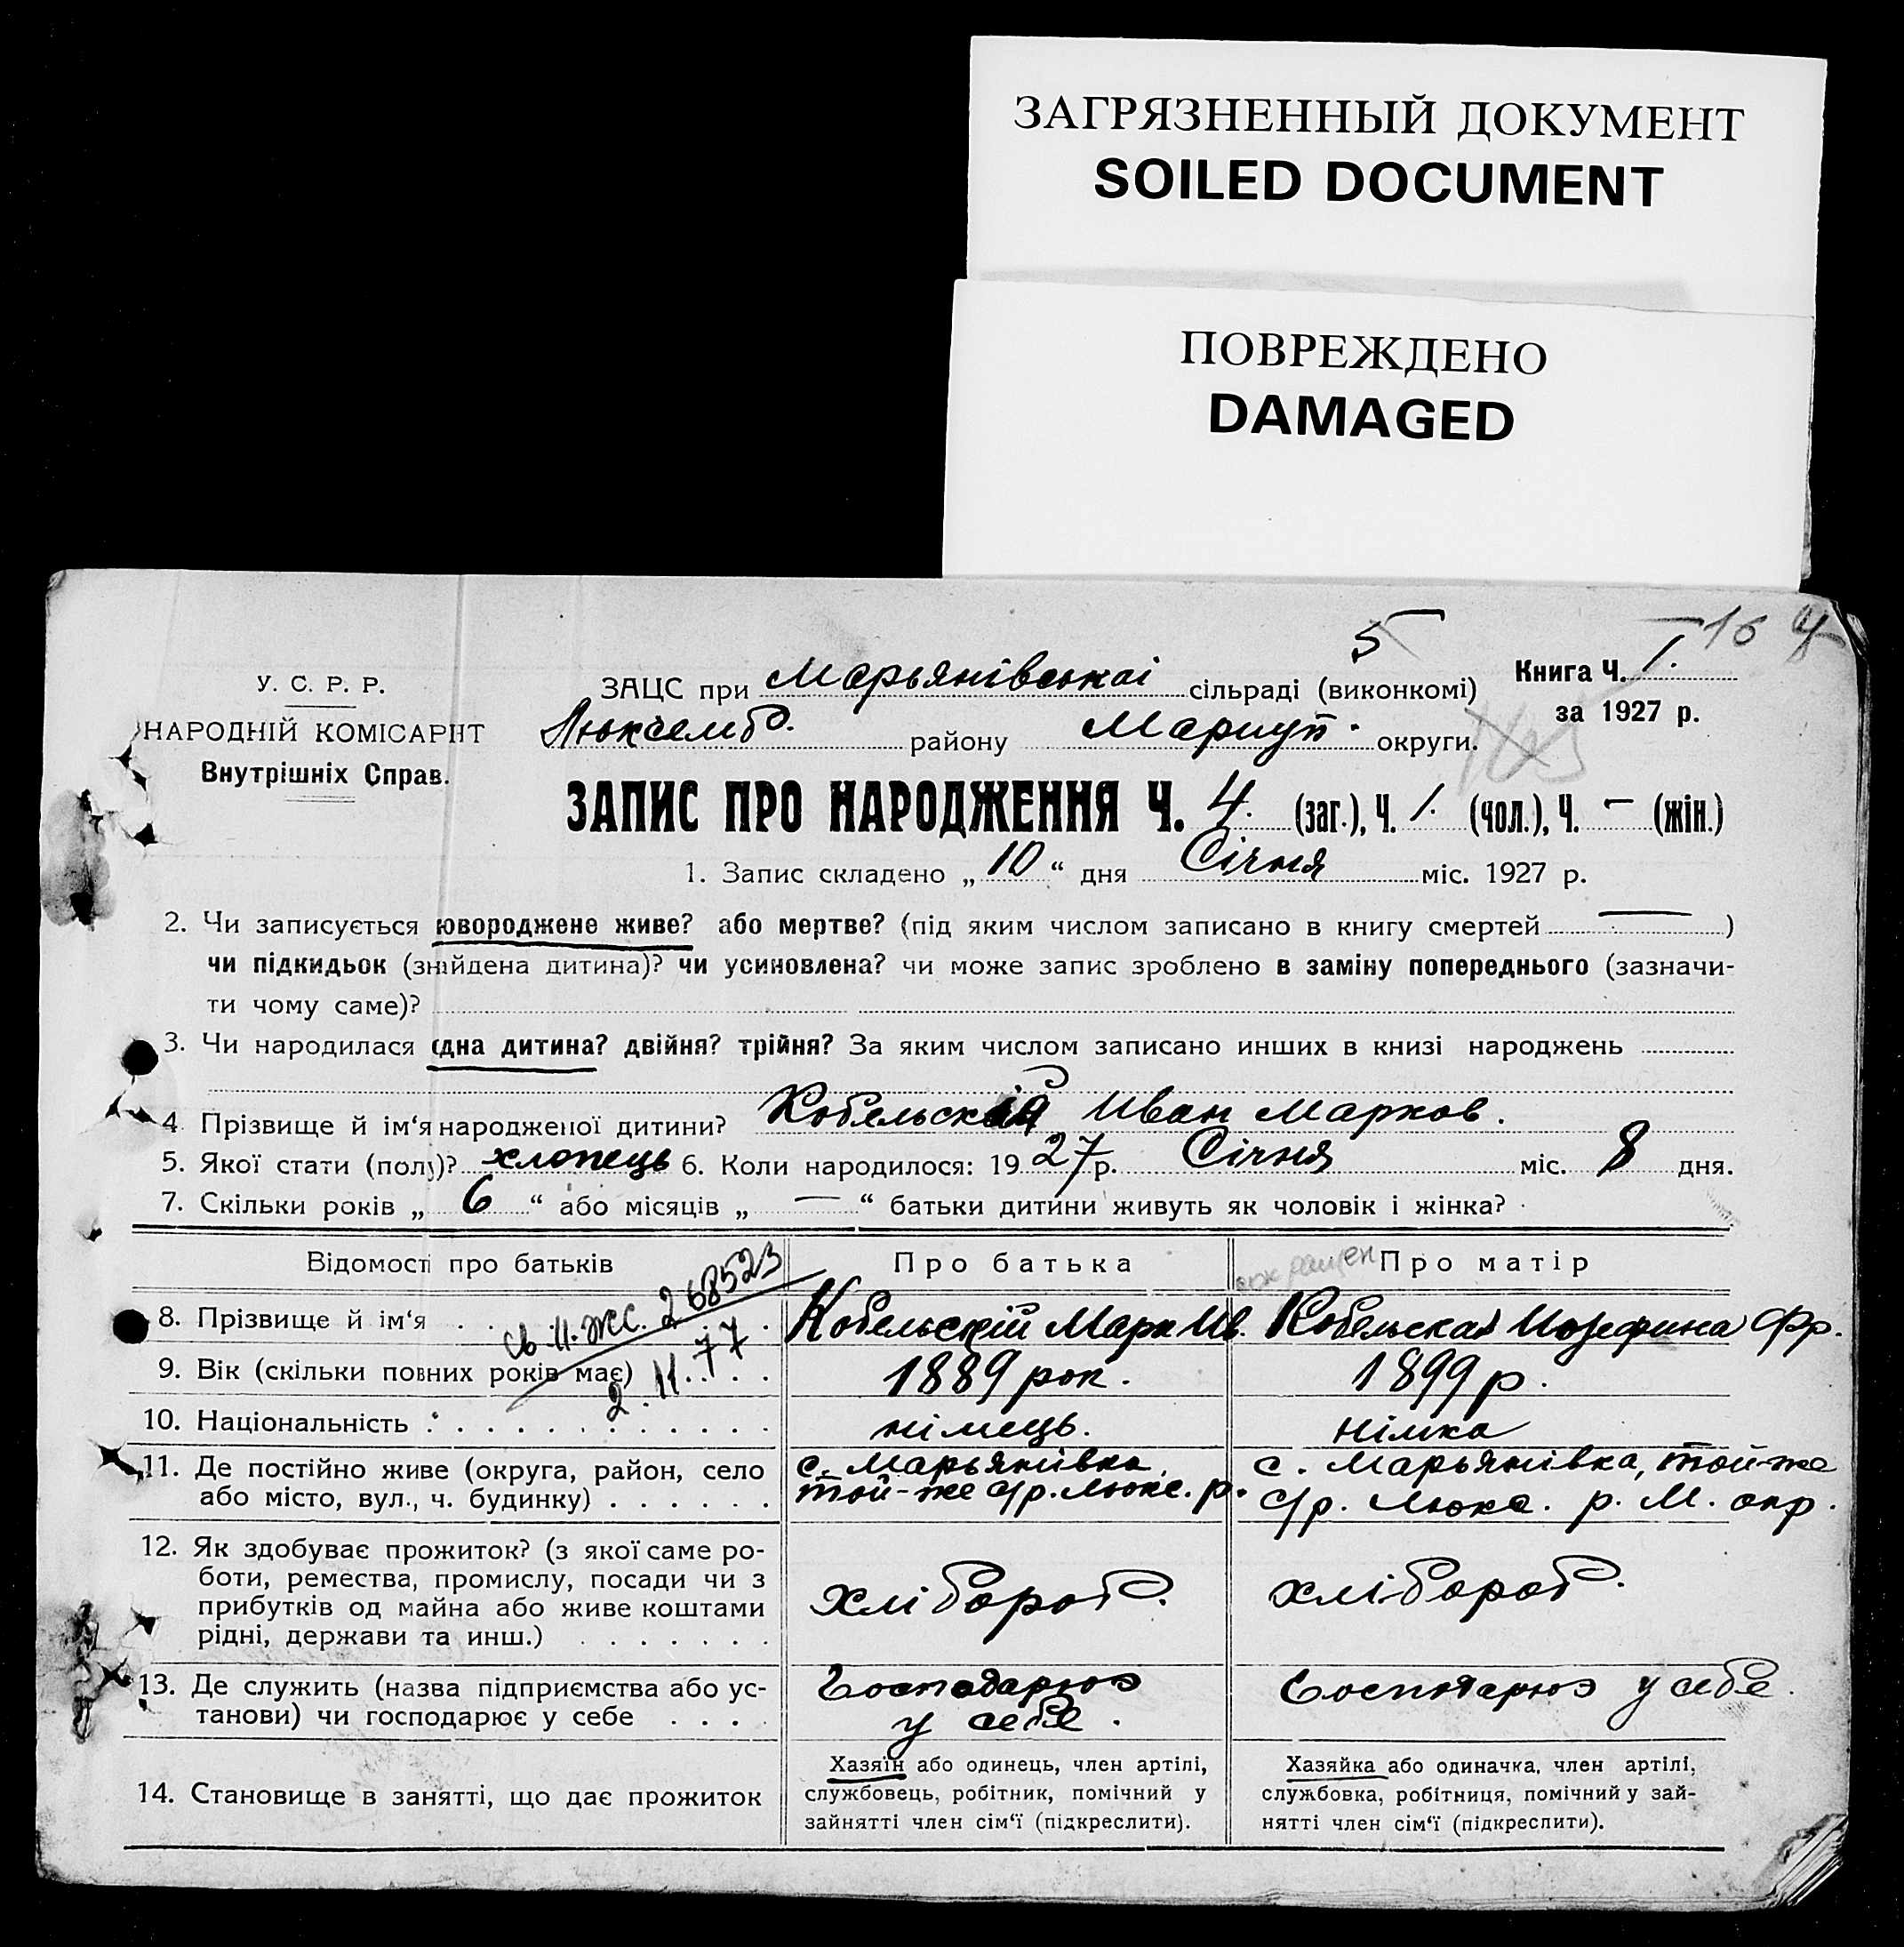 ЗАГРЯЗНЕННЫЙ ДОКУМЕНТ
SOILED DOCUMENT
ПОВРЕЖДЕНО
DAMAGED
5
16
У. С. Р. Р.
НАРОДНІЙ КОМІСАРІЯТ
Внутрішніх Справ.
ЗАЦС при Марьянівській сільраді (виконкомі)
Книга Ч. 1.
за 1927 р.
Люксемб. району Мариуп. округи.
ЗАПИС ПРО НАРОДЖЕННЯ Ч. 4. (заг.), Ч. 1. (чол.), Ч. — (жін.)
1. Запис складено „ 10 “ дня Січня міс. 1927 р.
2. Чи записується новороджене живе? або мертве? (під яким числом записано в книгу смертей — )
чи підкидьок (знайдена дитина)? чи усиновлена? чи може запис зроблено в заміну попереднього (зазначи-
ти чому саме)?
3. Чи народилася одна дитина? двійня? трійня? За яким числом записано инших в книзі народжень
4. Прізвище й ім‘я народженої дитини? Кобельский Иван Марков.
5. Якої стати (полу)? хлопець 6. Коли народилося: 19 27 р. Січня міс. 8 дня.
7. Скільки років „ 6 “ або місяців „ — “ батьки дитини живуть як чоловік і жінка?
Відомості про батьків
Про батька
Про матір
8. Прізвище й ім‘я
Кобельскій Марк Ив.
Кобельская Иозефина Фр.
св. II. ЖС. 268523
2.11.77
9. Вік (скільки повних років має)
1889 рок.
1899 р.
10. Національність
німець.
німка
11. Де постійно живе (округа, район, село
або місто, вул., ч. будинку)
с. Марьянівка,
той-же с/р. Люкс. р.
с. Марьянівка, той-же
с/р. Люкс. р. М. окр.
12. Як здобуває прожиток? (з якої саме ро-
боти, ремества, промислу, посади чи з
прибутків од майна або живе коштами
рідні, держави та инш.)
хлібороб.
хлібороб.
13. Де служить (назва підприємства або ус-
танови) чи господарює у себе
Господарює
у себе.
Господарює у себе.
14. Становище в занятті, що дає прожиток
Хазяїн або одинець, член артілі,
службовець, робітник, помічний у
зайнятті член сім‘ї (підкреслити).
Хазяйка або одиначка, член артілі,
службовка, робітниця, помічний у зай-
нятті член сім‘ї (підкреслити).